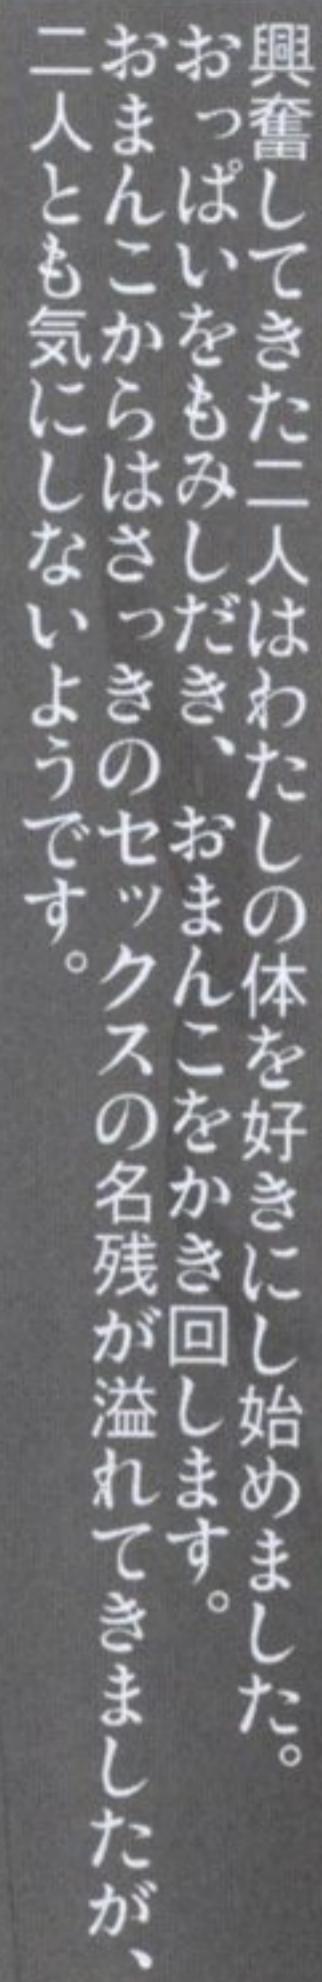 興奮してきた二人はわたしの体を好きにし始めました。
おっぱいをもみしだき、おまんこをかき回します。
おまんこからはさっきのセックスの名残が溢れてきましたが、
二人とも気にしないようです。